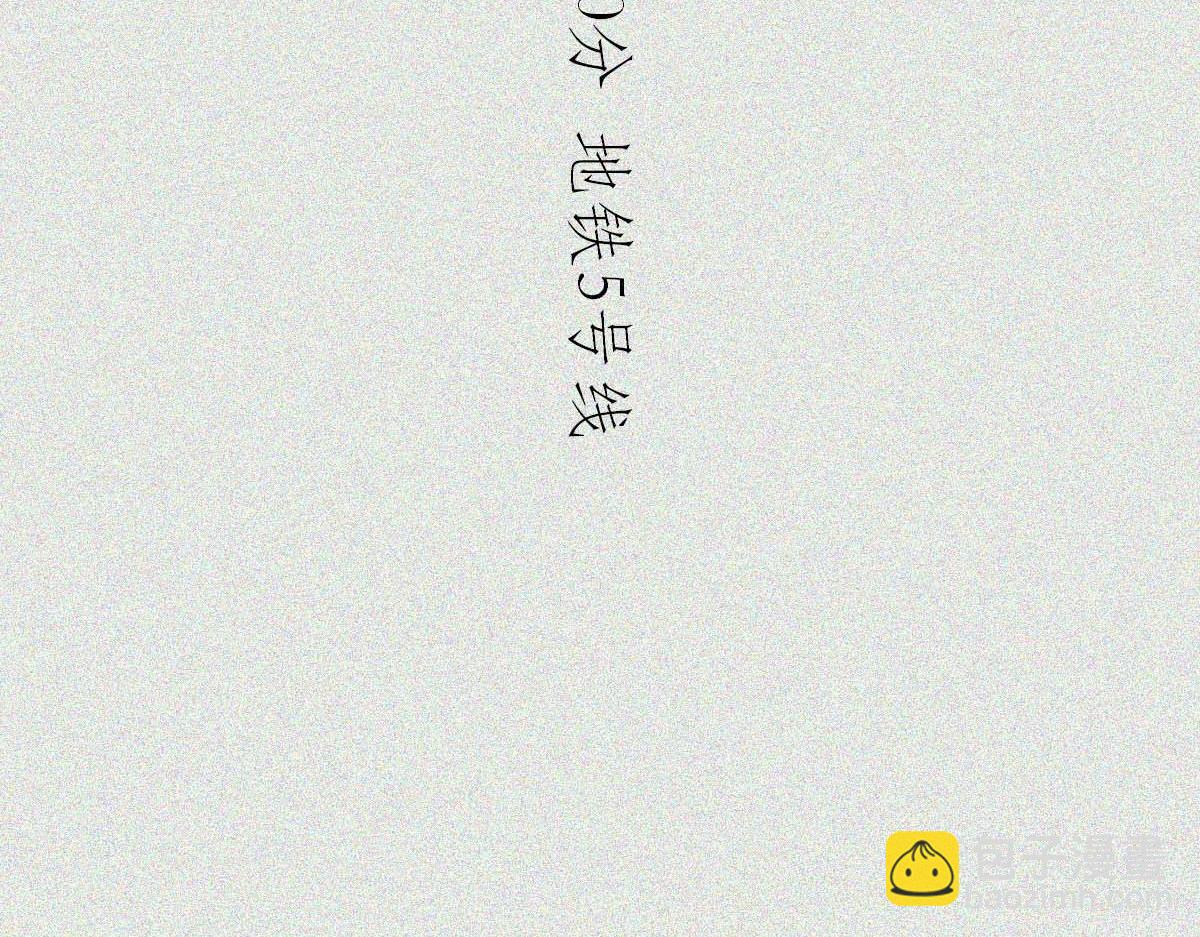 0分 地铁5号线
包子漫畫
baozimh.com